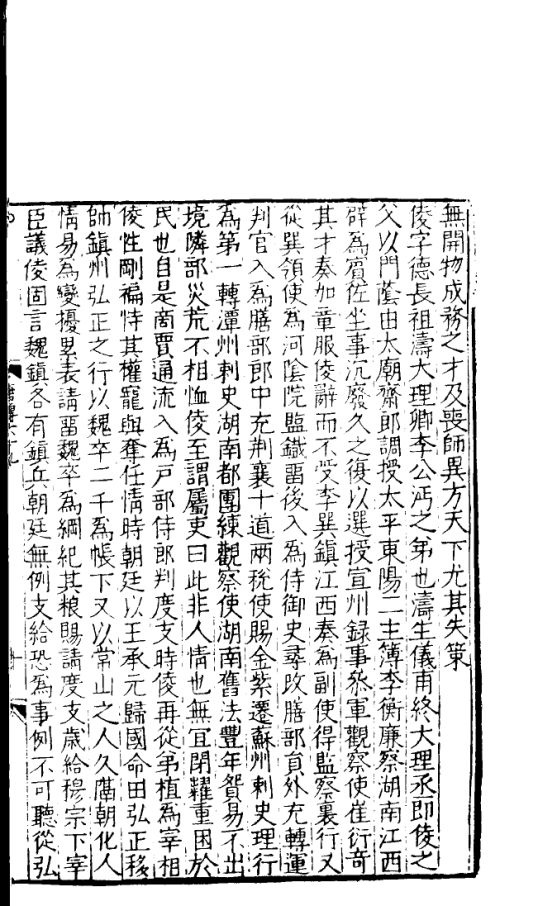 無開物成務之才及喪師異方天下尤其失策
倰字德長祖濤大理卿李公沔之弟也濤生儀甫終大理丞即倰之
父以門蔭由太廟齋郎調授太平東陽二主簿李衡廉察湖南江西
辟為賓佐坐事沉廢久之復以選授宣州錄事叅軍觀察使崔衍奇
其才奏加章服倰辭而不受李巽鎮江西奏為副使得監察裏行又
從巽領使為河陰院監鐵畱後入為侍御史尋改膳部員外充轉運
判官入為膳部郎中充荆襄十道兩稅使賜金紫遷蘇州刺史理行
為第一轉潭州刺史湖南都團練觀察使湖南舊法豐年貿易不出
境隣部災荒不相恤倰至謂屬吏曰此非人情也無宜閉糶重困於
民也自是商賈通流入為戶部侍郎判度支時倰再從弟植為宰相
倰性剛褊恃其權寵與奪任情時朝廷以王承元歸國命田弘正移
帥鎮州弘正之行以魏卒二千為帳下又以常山之人久隔朝化人
情易為變擾累表請畱魏卒為綱紀其粮賜請度支歲給穆宗下宰
臣議倰固言魏鎮各有鎮兵朝廷無例支給恐為事例不可聽從弘